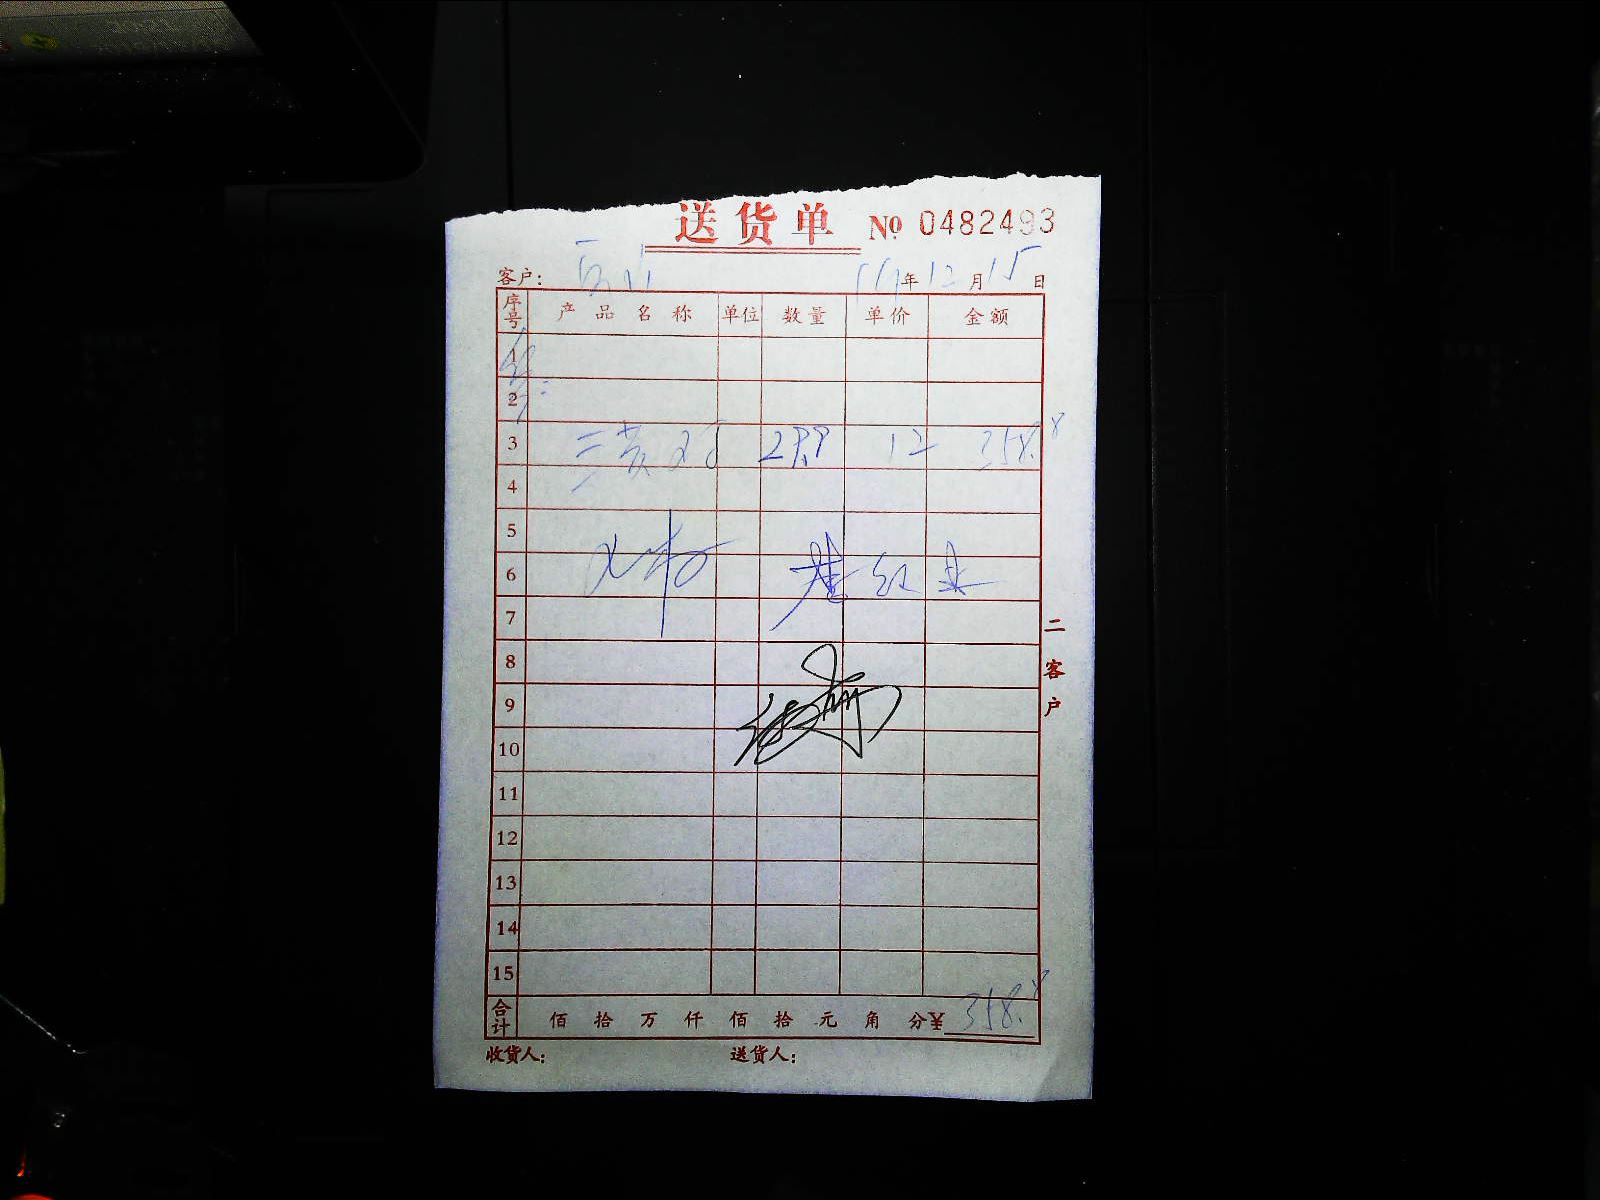 送货单 № 0482493
客户: 年12月15日
序号 产品名称 单位 数量 单价 金额
1
2
3 三黄鸡 29.9 12 358.8
4
5
6
7
8
9
10
11
12
13
14
15
合计 佰 拾 万 仟 佰 拾 元 角 分¥ 358.8
收货人: 送货人:
二客户